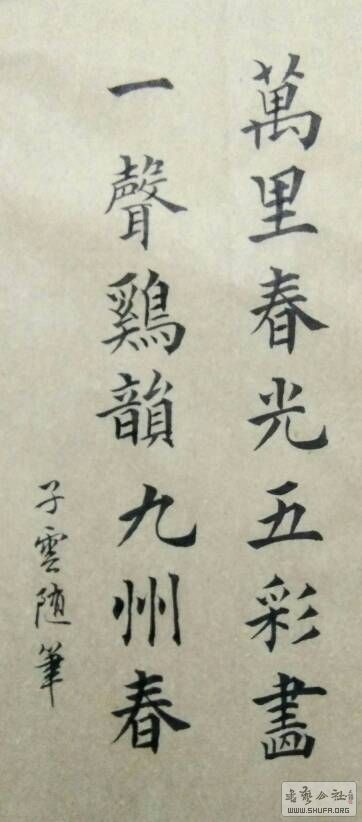 萬里春光五彩畫
一聲鷄韻九州春
子雲随筆
书艺公社
WWW.SHUFA.ORG